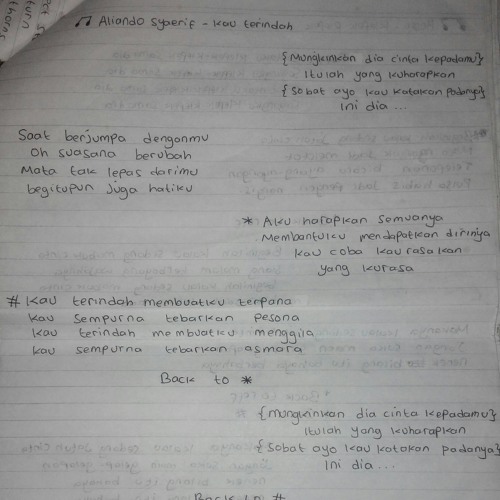 ♫ Aliando Syaerif - Kau terindah
{Mungkinkan dia cinta kepadamu}
Itulah yang kuharapkan
{Sobat ayo kau katakan padanya}
Ini dia ...
Saat berjumpa denganmu
Oh suasana berubah
Mata tak lepas darimu
begitupun juga hatiku
* Aku harapkan semuanya
Membantuku mendapatkan dirinya
Kau coba kau rasakan
yang kurasa
# Kau terindah membuatku terpana
Kau sempurna tebarkan pesona
Kau terindah membuatku menggila
Kau sempurna tebarkan asmara
Back to *
{Mungkinkan dia cinta kepadamu}
Itulah yang kuharapkan
{Sobat ayo kau katakan padanya}
Ini dia ...
Back to #